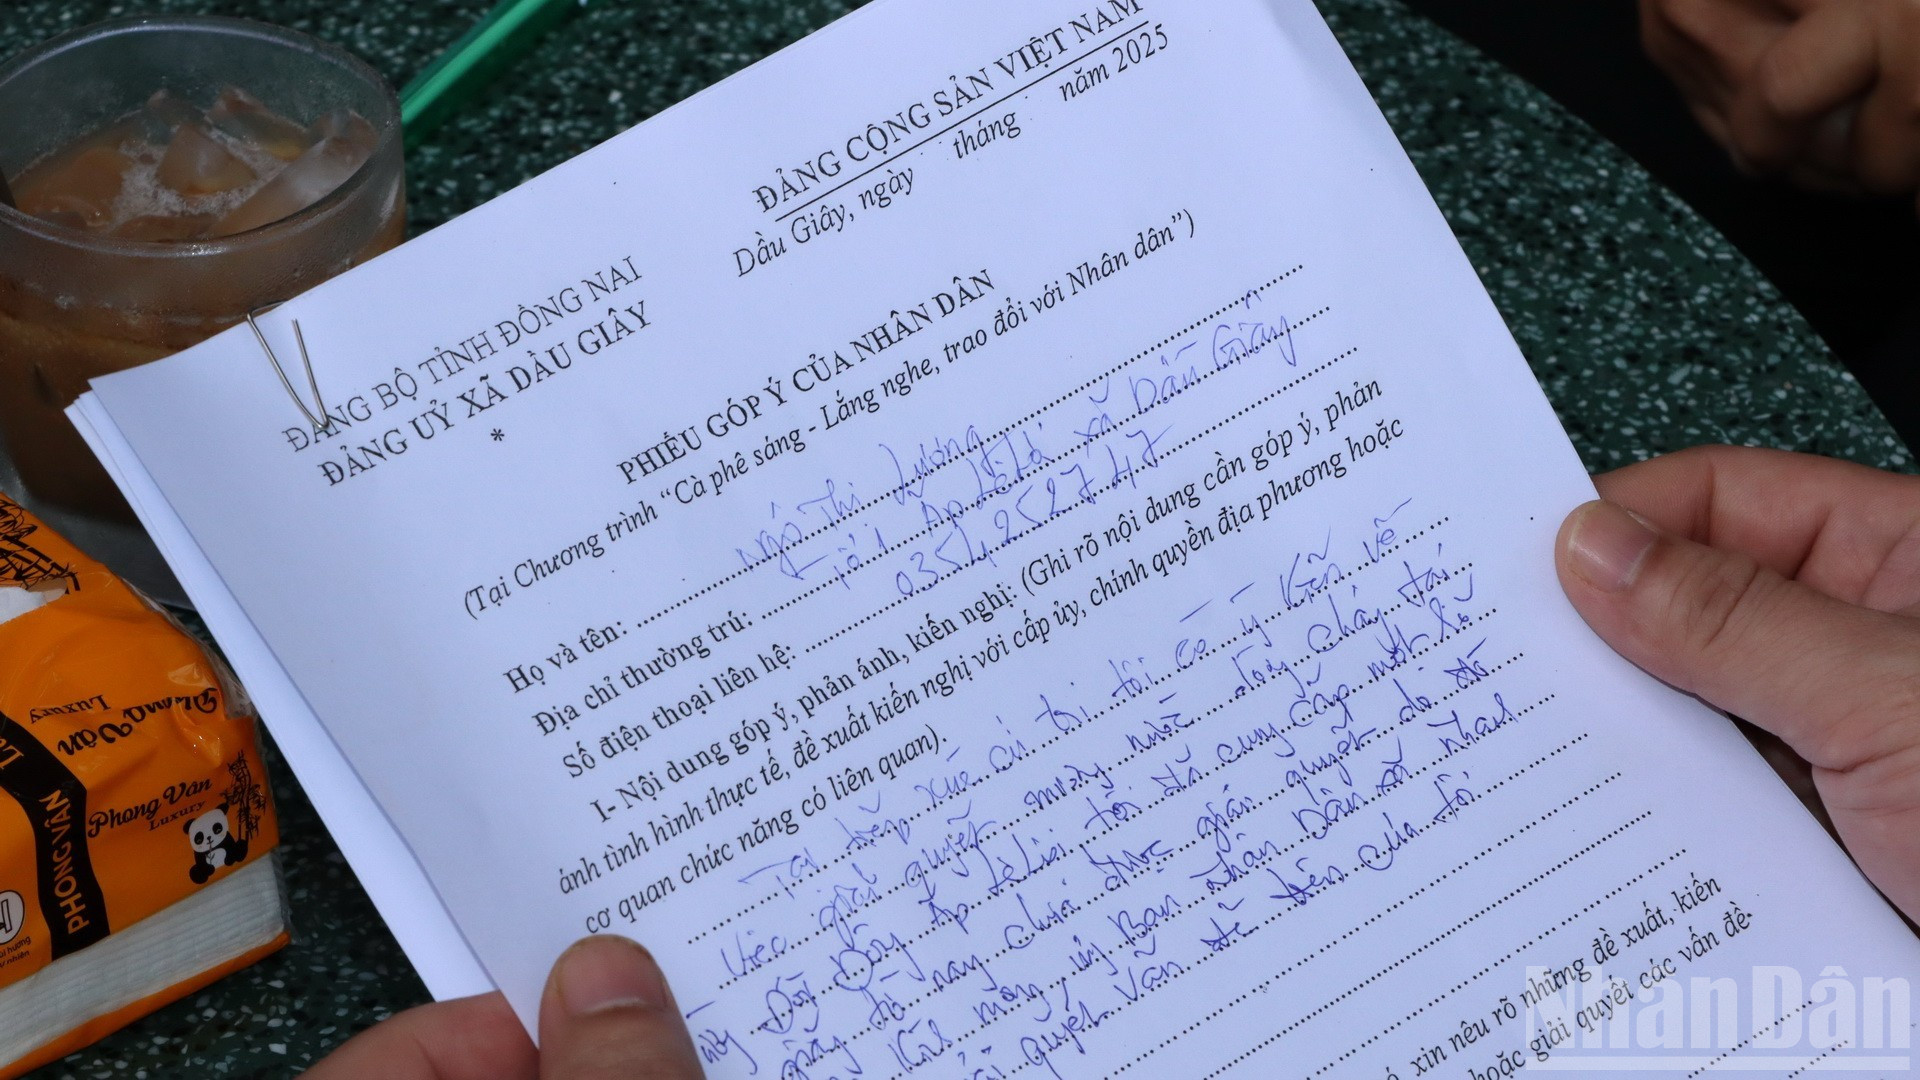 ĐẢNG BỘ TỈNH ĐỒNG NAI
ĐẢNG UỶ XÃ DẦU GIÂY
*
ĐẢNG CỘNG SẢN VIỆT NAM
Dầu Giây, ngày tháng năm 2025
PHIẾU GÓP Ý CỦA NHÂN DÂN
(Tại Chương trình “Cà phê sáng - Lắng nghe, trao đổi với Nhân dân”)
Họ và tên: Ngô Thị Lương
Địa chỉ thường trú: Tổ 1 Ấp xã Dầu Giây
Số điện thoại liên hệ: 0354252747
I- Nội dung góp ý, phản ánh, kiến nghị: (Ghi rõ nội dung cần góp ý, phản
ánh tình hình thực tế, đề xuất kiến nghị với cấp ủy, chính quyền địa phương hoặc
cơ quan chức năng có liên quan).
Tại tiếp xúc cử tri tôi có ý kiến về
việc giải quyết mương nước chảy tại
Ấp tôi đã cung cấp một số
nay chưa được giải quyết do đó
mong Ủy Ban nhân Dân xã nhanh
quyết vấn đề trên của tôi
xin nêu rõ những đề xuất, kiến
hoặc giải quyết các vấn đề.
Phong Vân
Luxury
PHONG VÂN
Phong Vân
Luxury
NhanDân